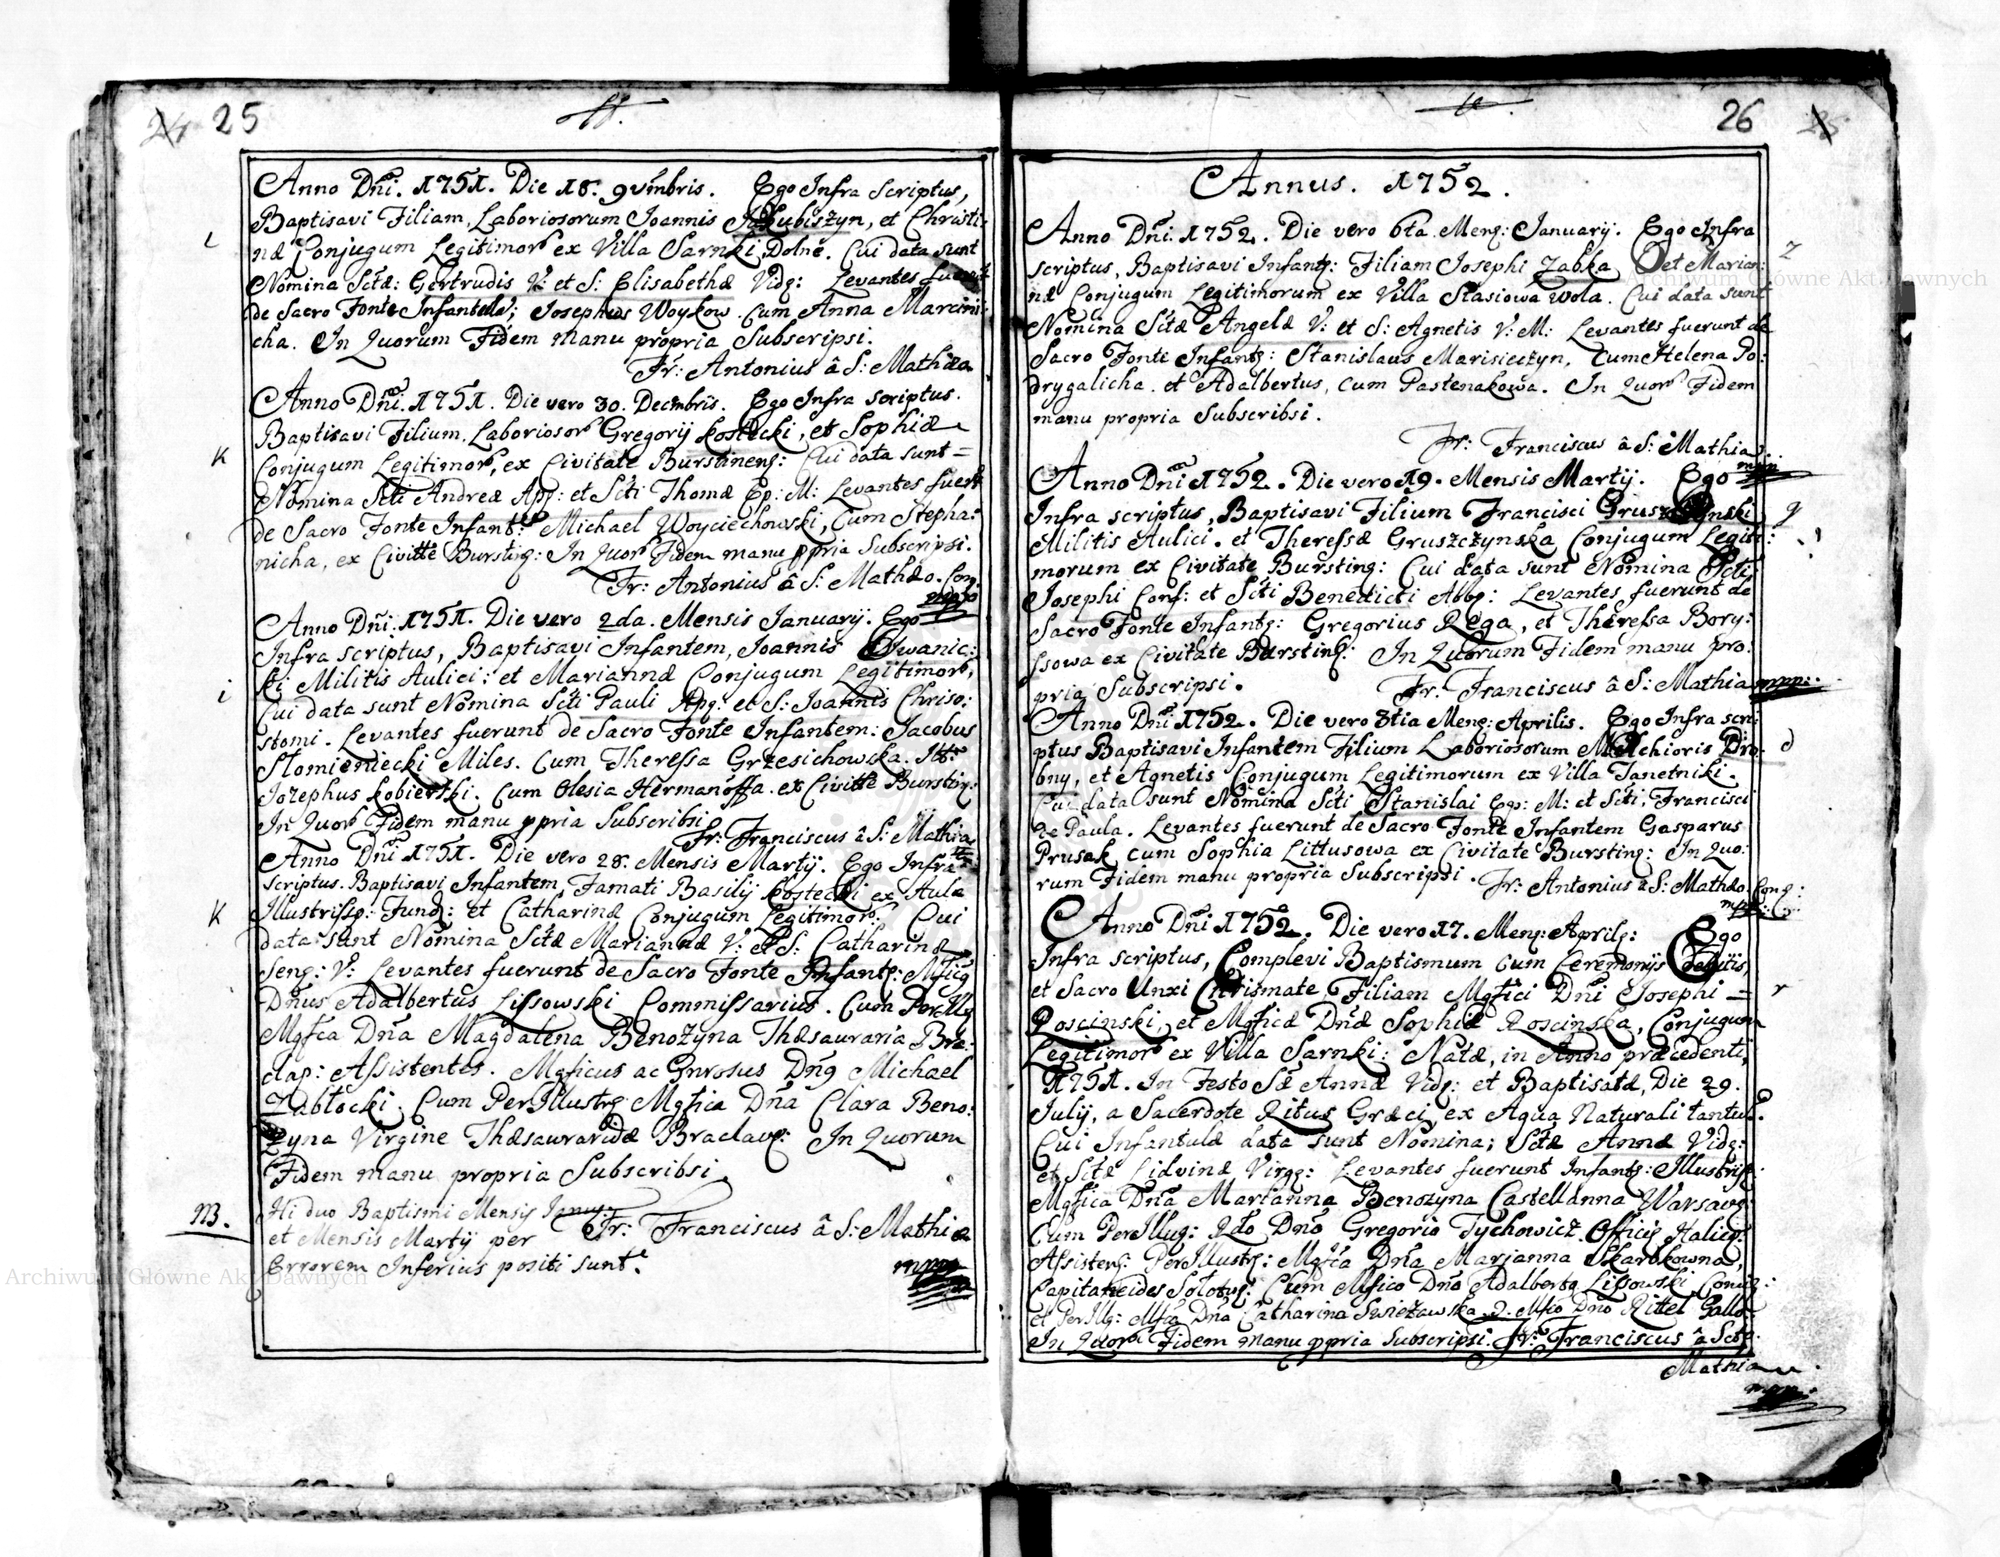 25
Anno Dñi. 1751. Die 18. 9vmbris. Ego Infra scriptus,
Baptisavi Filiam, Laboriosorum Joannis Jakubiszyn, et Christi:
næ Conjugum Legitimor̃ ex Villa Sarnki Dolne. Cui data sunt
Nomina Sctæ: Gertrudis V: et S: Elisabethæ Vidq: Levantes
de Sacro Fonte Infantem; Josephus Woykow. Cum Anna Marcini:
cha. In Quorum Fidem manu propria Subscripsi.
Fr: Antonius â S: Mathæo
Anno Dñi. 1751. Die vero 30. Decmbris. Ego Infra scriptus.
Baptisavi Filium, Laboriosor̃ Gregorij Kostecki, et Sophiæ
K
Conjugum Legitimor̃, ex Civitate Burstinenq: Cui data sunt =
Nomina Scti Andreæ Apq: et Scti Thomæ Ep: M: Levantes fuert
de Sacro Fonte Infant: Michael Woyciechowski, Cum Stepha:
nicha, ex Civitte Burstiq: In Quor̃ Fidem manu ppria Subscripsi.
Fr: Antonius â S: Mathæo. Conq.
Anno Dñi: 1751. Die vero 2da. Mensis Januarij. Ego
Infra scriptus, Baptisavi Infantem, Joannis Iwanic:
ki Militis Aulici: et Mariannæ Conjugum Legitimor̃,
i
Cui data sunt Nomina Scti Pauli Apq: et S: Joannis Chriso:
stomi. Levantes fuerunt de Sacro Fonte Infantem: Jacobus
Słomieniecki Miles. Cum Theressa Grzesichowska. Itt:
Jozephus Kobierski. Cum Olesia Hermanoffa. ex Civitte Burstiq:
In Quor̃ Fidem manu ppria Subscribsi
Fr: Franciscus â S: Mathia
Anno Dñi 1751. Die vero 28. Mensis Martij. Ego Infra
scriptus. Baptisavi Infantem, Famati Basilij Kostecki ex Aula
K
Illustrissq: Fundq: et Catharinæ Conjugum Legitimor̃. Cui
data sunt Nomina Sctæ Mariannæ V: et S: Catharinæ
Senq: V: Levantes fuerunt de Sacro Fonte Infantq: Mficq
Dñus Adalbertus Lissowski Commissarius. Cum PerIllq
Mgfca Dña Magdalena Benożyna Thæsauraria Bra:
clap: Assistentes. Mgficus ac Gnrosus Dñq Michael
Zabłocki, Cum PerIllustrq Mgfica Dña Clara Beno:
zyna Virgine Thæsauraridæ Braclavq: In Quorum
Fidem manu propria Subscribsi
NB.
Hi duo Baptismi Mensis Januq:
et Mensis Martij per
Errorem Inferius positi sunt.
Fr: Franciscus â S: Mathia
mpp
26
Annus. 1752.
Anno Dñi. 1752. Die vero 6ta Menq: Januarij. Ego Infra
scriptus, Baptisavi Infantq: Filiam Josephi Zabka et Marian:
Z
næ Conjugum Legitimorum ex Villa Stasiowa Wola. Cui data sunt
Nomina Sctæ Angelæ V: et S: Agnetis V: M: Levantes fuerunt de
Sacro Fonte Infantq: Stanislaus Marisieczyn, Cum Helena Po:
drygalicha. et Adalbertus, Cum Pastenakowa. In Quor̃ Fidem
manu propria Subscribsi.
Fr: Franciscus â S: Mathia
mpp
Anno Dñi 1752. Die vero 19. Mensis Martij. Ego
Infra scriptus, Baptisavi Filium Francisci Gruszczynski
g
Militis Aulici. et Theressæ Gruszczynska Conjugum Legiti:
morum ex Civitate Burstinq: Cui data sunt Nomina Scti
Josephi Conf: et Scti Benedicti Abbq: Levantes fuerunt de
Sacro Fonte Infantq: Gregorius Rega, et Theressa Bory:
ssowa ex Civitate Burstinq: In Quorum Fidem manu pro:
pria Subscripsi.
Fr: Franciscus â S: Mathia mpp.
Anno Dñi 1752. Die vero 3tia Menq: Aprilis. Ego Infra scri:
ptus Baptisavi Infantem Filium Laboriosorum Melchioris Dro:
d
bny, et Agnetis Conjugum Legitimorum ex Villa Tanetniki.
Cui data sunt Nomina Scti Stanislai Eqp: M: et Scti, Francisci
de Paula. Levantes fuerunt de Sacro Fonte Infantem Gasparus
Prusak cum Sophia Littusowa ex Civitate Burstinq: In Quo:
rum Fidem manu propria Subscripsi. Fr: Antonius â S: Mathæo. Conq:
Anno Dñi 1752. Die vero 17. Menq: Aprilq: Ego
Infra scriptus, Complevi Baptismum cum Ceremonijs debitis,
et Sacro Unxi Chrismate Filiam Mgfici Dñi Josephi =
r
Roscinski, et Mgficæ Dñæ Sophiæ Roscinska, Conjugum
Legitimor̃ ex Villa Sarnki: Natæ, in Anno præcedenti,
1751. In Festo Sæ Annæ Vidq: et Baptisatæ, Die 29.
Julij, a Sacerdote Ritus Græci, ex Aqua Naturali tantum.
Cui Infantulæ data sunt Nomina; Sctæ Annæ Vidq:
et Sctæ Lidvinæ Virgq: Levantes fuerunt Infantq: Illustrisq:
Mgfica Dña Marianna Benozyna Castellanna Warsavq:
Cum PerIlluq: Rdo Dño Gregorio Tychowicz Officiq Halicq:
Assistenq: PerIllustq: Mgfca Dña Marjanna Skarbkowna,
Capitaneides Sołotwq: Cum Mfico Dño Adalberto Lissowski Comiq:
et PerIllq: Mfca Dña Catharina Swieżawska 2. Mfio Dño Rittel Gallo
In Quor̃ Fidem manu ppria Subscripsi. Fr: Franciscus â Sctq.
Mathia